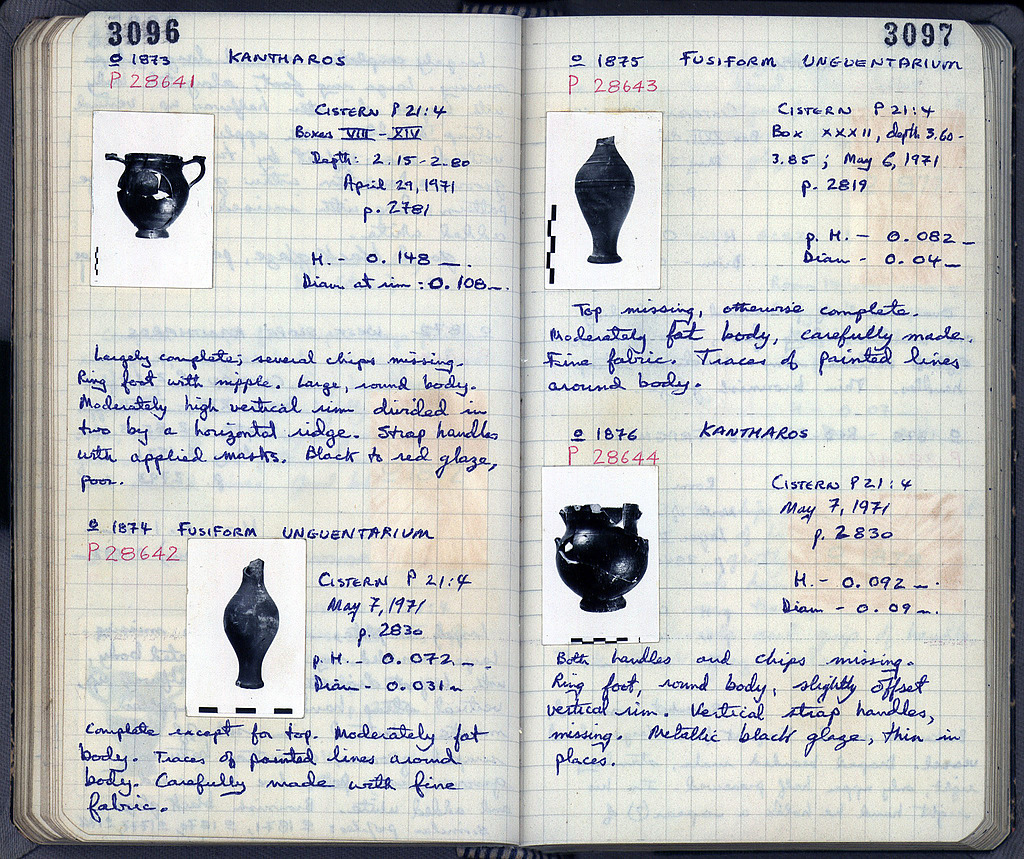 3096
o 1873 KANTHAROS
P 28641
CISTERN P 21:4
Boxes VIII - XIV
Depth: 2.15-2.80
April 29, 1971
p. 2781
H. - 0.148 m.
Diam at rim: 0.108 m.
Largely complete; several chips missing.
Ring foot with nipple. Large, round body.
Moderately high vertical rim divided in
two by a horizontal ridge. Strap handles
with applied masks. Black to red glaze,
poor.
o 1874 FUSIFORM UNGUENTARIUM
P 28642
CISTERN P 21:4
May 7, 1971
p. 2830
p. H. - 0.072 m.
Diam - 0.031 m
Complete except for top. Moderately fat
body. Traces of painted lines around
body. Carefully made with fine
fabric.
3097
o 1875 FUSIFORM UNGUENTARIUM
P 28643
CISTERN P 21:4
Box XXXII, depth 3.60-
3.85; May 6, 1971
p. 2819
p. H. - 0.082 m
Diam - 0.04 m
Top missing, otherwise complete.
Moderately fat body, carefully made.
Fine fabric. Traces of painted lines
around body.
o 1876 KANTHAROS
P 28644
CISTERN P 21:4
May 7, 1971
p. 2830
H. - 0.092 m.
Diam - 0.09 m.
Both handles and chips missing.
Ring foot, round body, slightly offset
vertical rim. Vertical strap handles,
missing. Metallic black glaze, thin in
places.